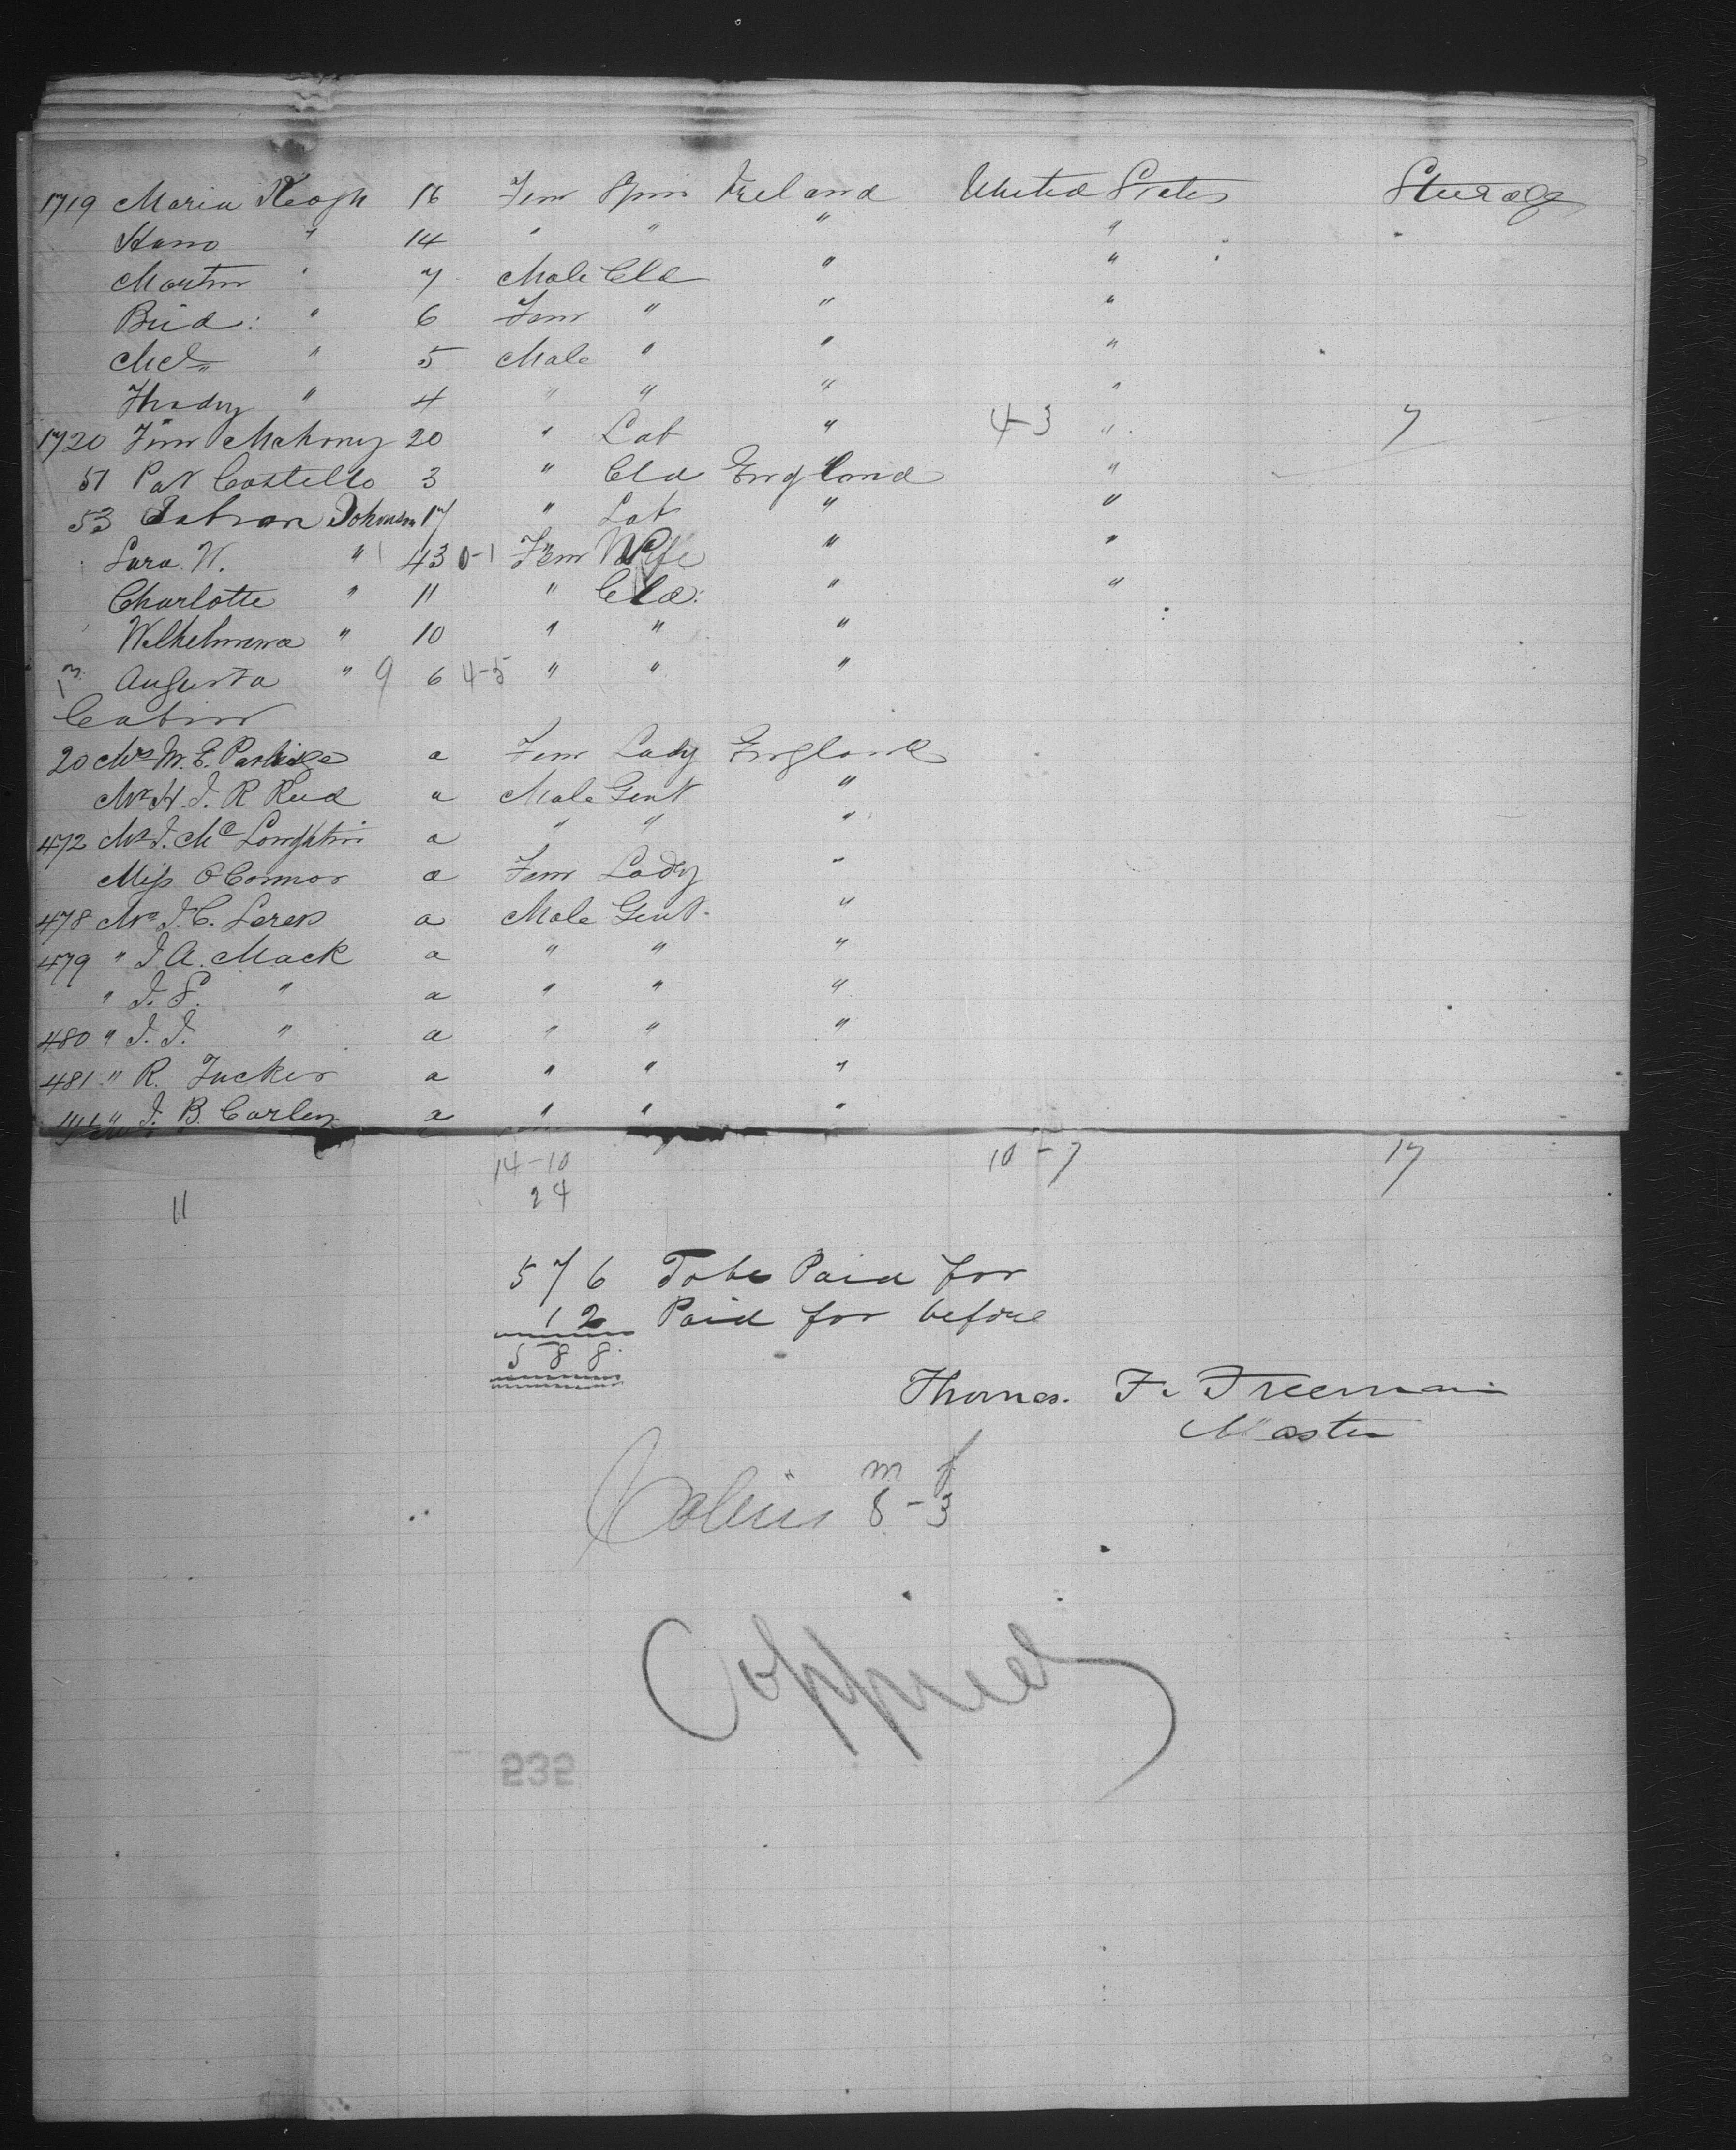 1719 Maria Keogh 16 Fem Spin Ireland United States Steerage
Hano " 14 " " " "
Martin " 7 Male Cld " "
Brid: " 6 Fem " " "
Mcl " 5 Male " " "
Thady " 4 " " " "
1720 Tim Mahony 20 " Lab " 4-3 " 7
51 Pat Costello 3 " Cld England "
53 Johnson 17 " Lab " "
Lara W. " 1 43 0-1 Fem Wife " "
Charlotte " 11 " Cld: " "
Wilhelmina " 10 " " "
13 Augusta " 9 6 4-5 " " "
Cabin
20 Mrs M. E. Partridge a Fem Lady England
Mr H. J. R Reed a Male Gent "
472 Mr J. Mc Loughtin a " " "
Miss O'Connor a Fem Lady "
478 Mr J. C. a Male Gent. "
479 " J A. Mack a " " "
" J. S. " a " " "
480 " J. J. " a " " "
481 " R. Tucker a " " "
" J. B. Carley a " " "
14-10 10-7 17
11 24
576 To be Paid for
12 Paid for before
588
Thomas. F. Freeman
Master
m f
Cabin 8-3
Coppied
535